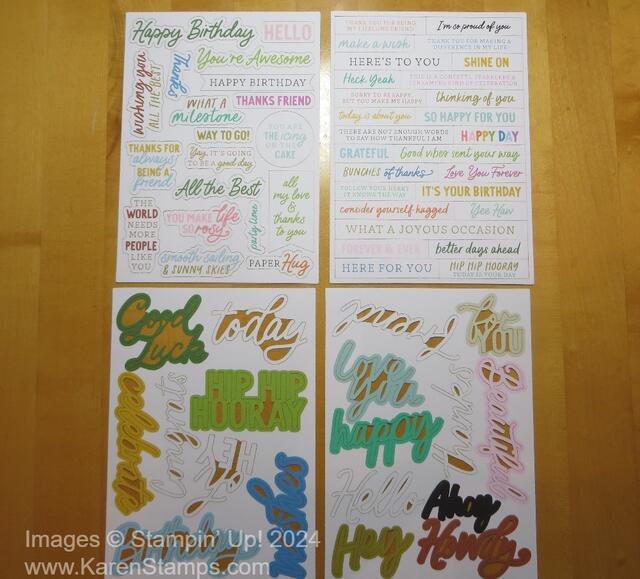 Happy Birthday
HELLO
wishing you
ALL THE BEST
Thanks
You're Awesome
HAPPY BIRTHDAY
WHAT A
milestone
THANKS FRIEND
WAY TO GO!
YOU ARE
THE icing
ON THE
CAKE
THANKS FOR
always
BEING A
friend
Yay, IT'S GOING
TO BE a good day
All the Best
all
my love
&
thanks
to you
THE
WORLD
NEEDS
MORE
PEOPLE
LIKE
YOU
YOU MAKE life
SO rosy
party time
smooth sailing
& SUNNY SKIES
PAPER Hug
THANK YOU FOR BEING
MY LIFELONG FRIEND
I'm so proud of you
make a wish
THANK YOU FOR MAKING A
DIFFERENCE IN MY LIFE
HERE'S TO YOU
SHINE ON
Heck Yeah
THIS IS A CONFETTI, SPARKLERS &
STREAMERS KIND OF CELEBRATION
SORRY TO BE SAPPY
BUT YOU MAKE ME HAPPY
thinking of you
today is about you
SO HAPPY FOR YOU
THERE ARE NOT ENOUGH WORDS
TO SAY HOW THANKFUL I AM
HAPPY DAY
GRATEFUL
Good vibes sent your way
BUNCHES of thanks
Love You Forever
FOLLOW YOUR HEART
IT KNOWS THE WAY
IT'S YOUR BIRTHDAY
consider yourself hugged
Yee Haw
WHAT A JOYOUS OCCASION
FOREVER & EVER
better days ahead
HERE FOR YOU
HIP HIP HOORAY
TODAY IS YOUR DAY
Good
Luck
today
celebrate
Congrats
HIP HIP
HOORAY
HEY
Birthday
wishes
friend
for
YOU
Love
You
thanks
Beautiful
happy
Hello
Ahoy
Hey
Howdy
Images © Stampin' Up! 2024
www.KarenStamps.com